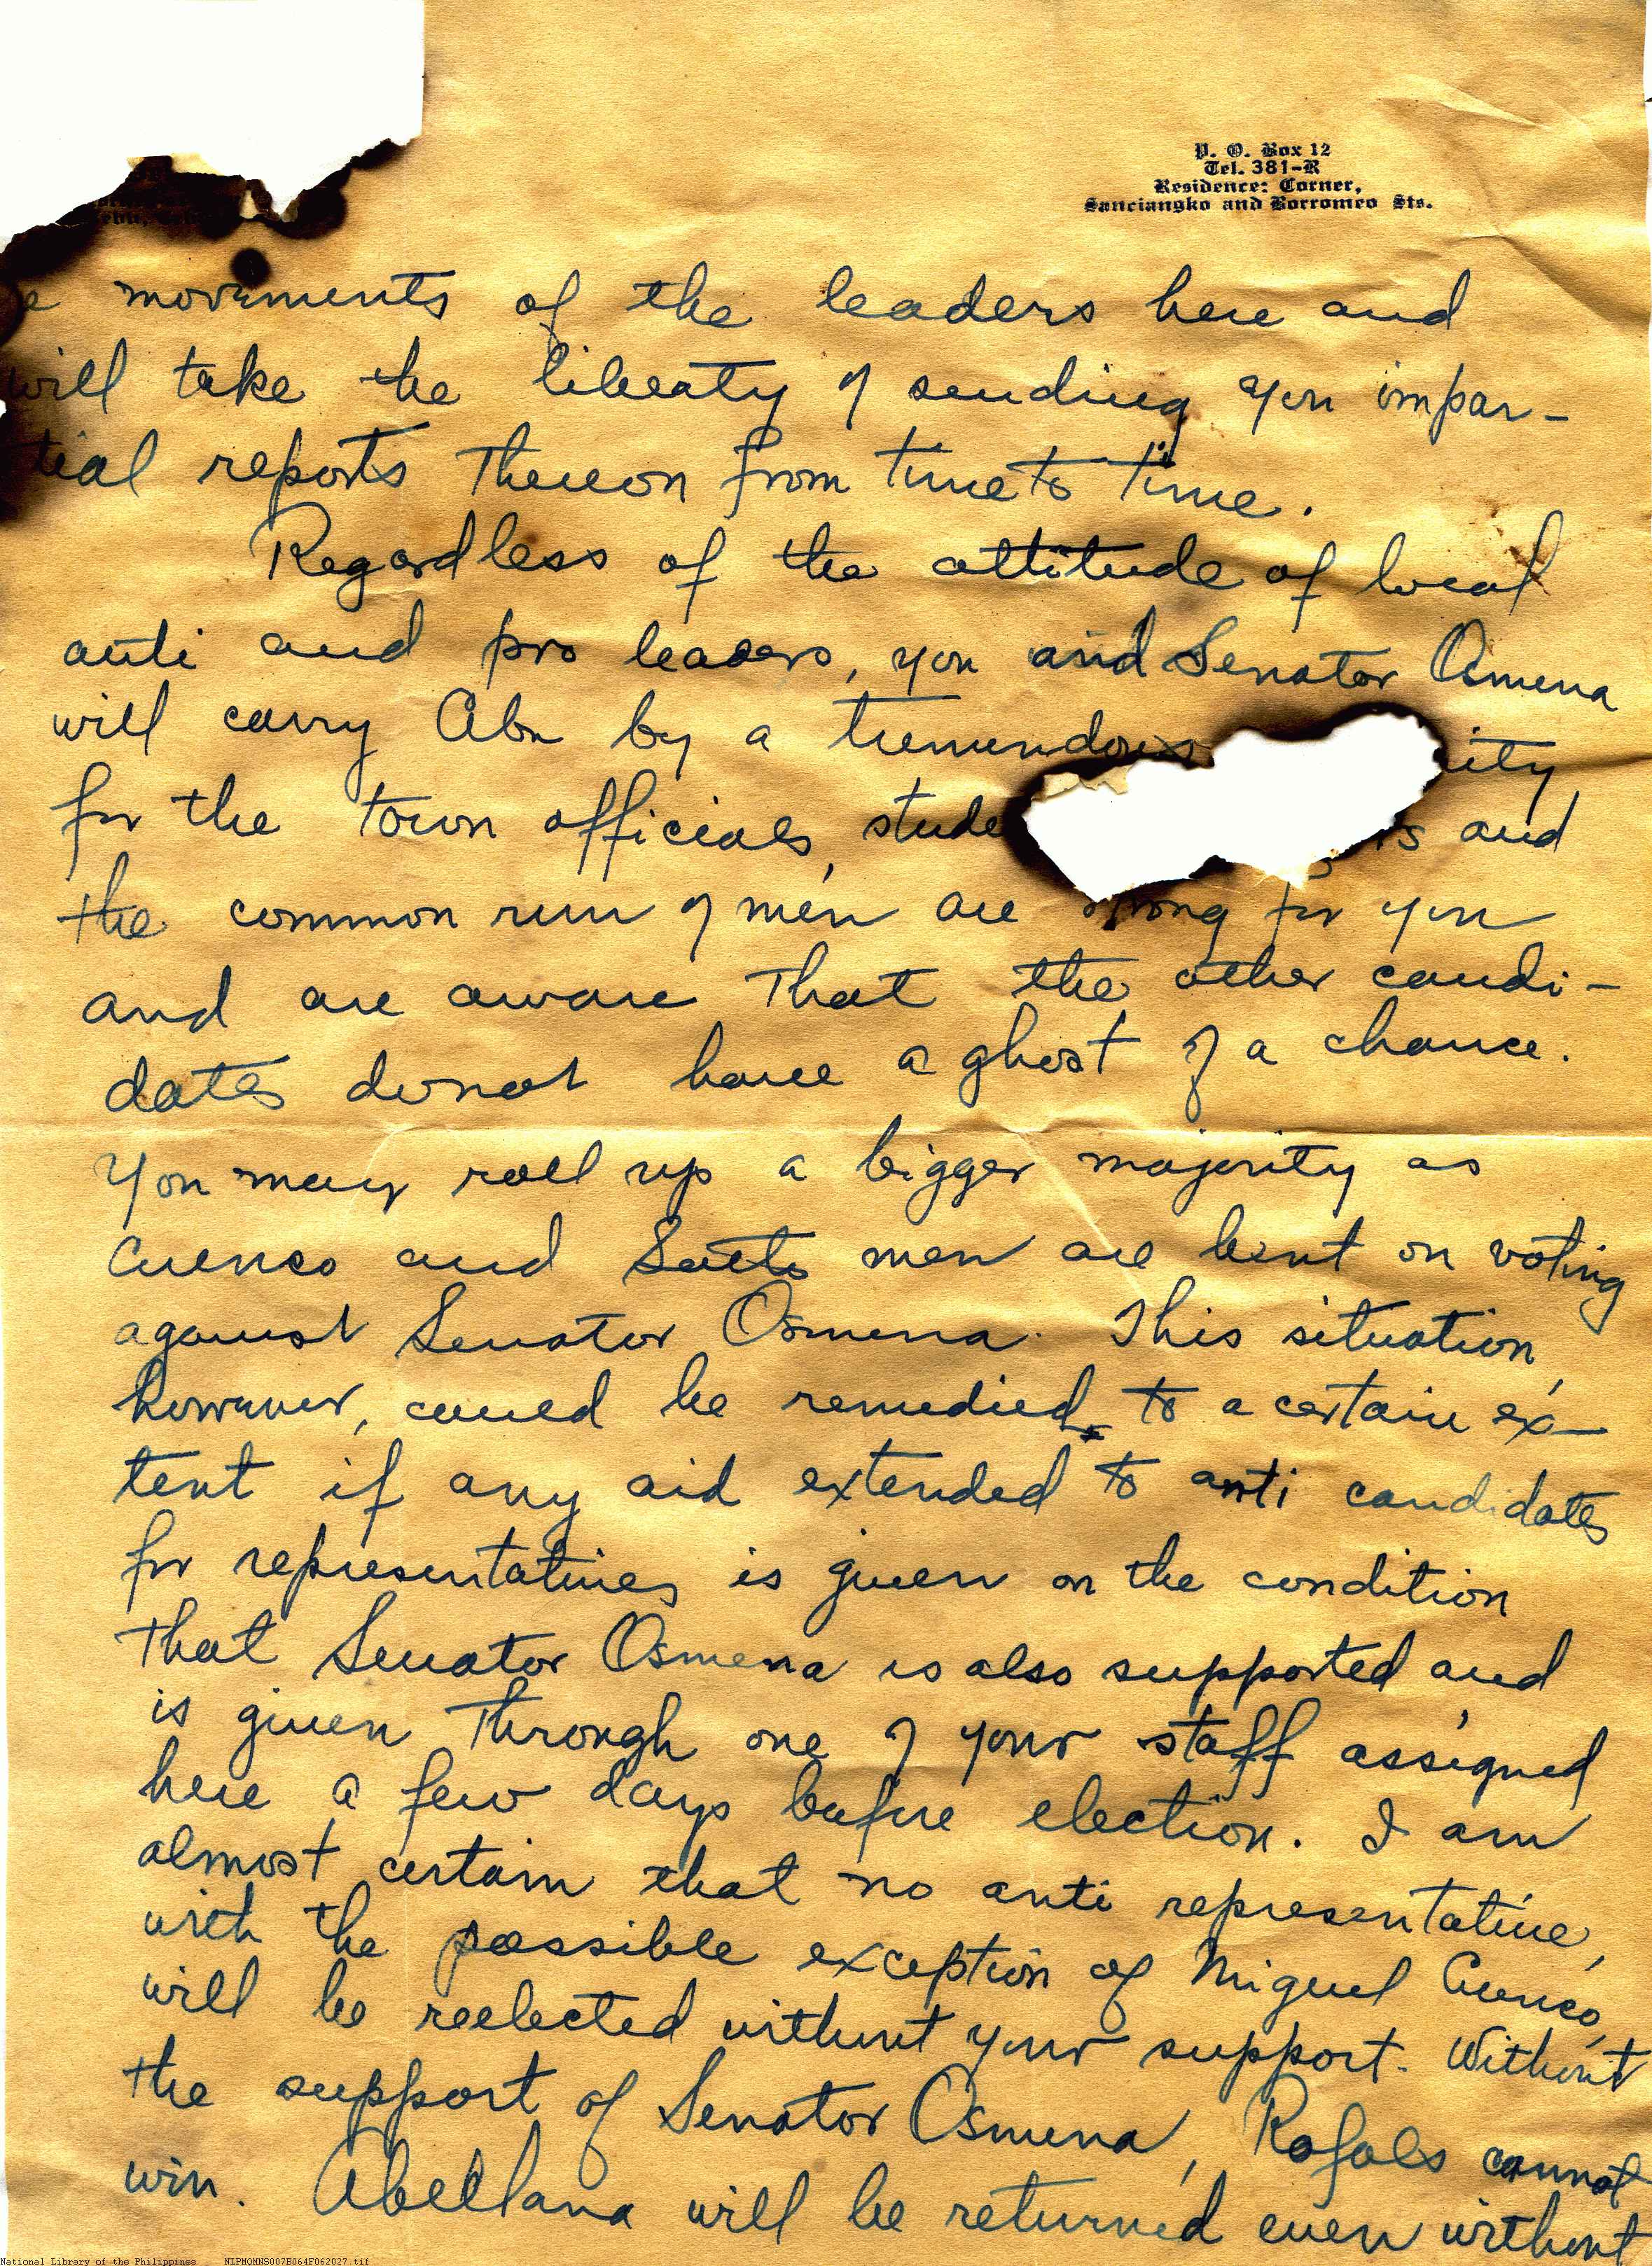 P. O. Box 12
Tel. 381-R
Residence: Corner,
Sanciangko and Borromeo Sts.
movements of the leaders here and
will take the liberty of sending you impar-
tial reports thereon from time to time.
Regardless of the attitude of local
anti and pro leaders, you and Senator Osmena
will carry by a tremendous ity
for the town officials, stude s and
the common run of men are strong for you
and are aware that the other candi-
dates do not have a ghost of a chance.
You may roll up a bigger majority as
Cuenco and men are bent on voting
against Senator Osmena. This situation,
however, could be remedied to a certain ex-
tent if any aid extended to anti candidates
for representatives is given on the condition
that Senator Osmena is also supported and
is given through one of your staff assigned
here a few days before election. I am
almost certain that no anti representative,
with the possible exception of Miguel Cuenco,
will be reelected without your support. Without
the support of Senator Osmena, Rafols cannot
win. Abellana will be returned even without
National Library of the Philippines NLPMQMNS007B064F062027.tif